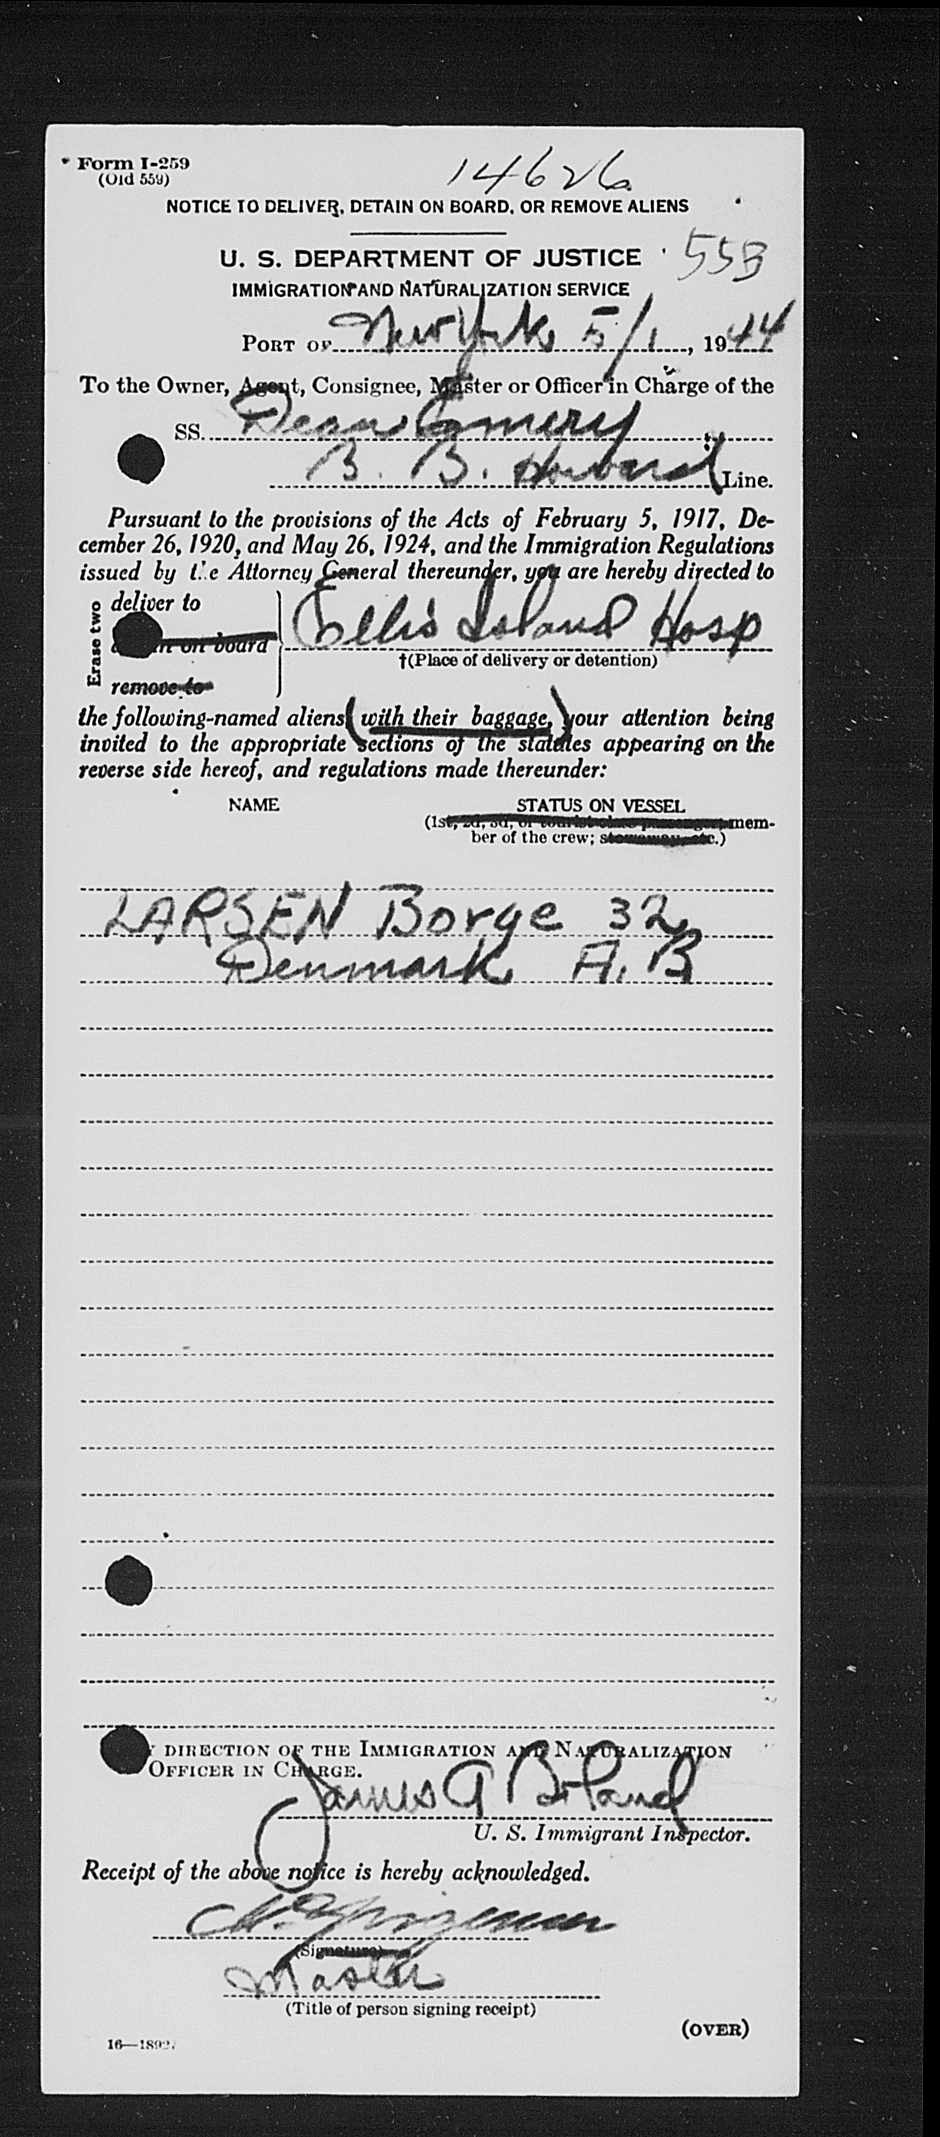 Form I-259
(Old 559)
14626
NOTICE TO DELIVER, DETAIN ON BOARD, OR REMOVE ALIENS
U. S. DEPARTMENT OF JUSTICE
553
IMMIGRATION AND NATURALIZATION SERVICE
PORT OF New York 5/1, 1944
To the Owner, Agent, Consignee, Master or Officer in Charge of the
SS. Dean Emery
B. B. Howard Line.
Pursuant to the provisions of the Acts of February 5, 1917, De-
cember 26, 1920, and May 26, 1924, and the Immigration Regulations
issued by the Attorney General thereunder, you are hereby directed to
Erase two
deliver to
on board
remove to
Ellis Island Hosp
†(Place of delivery or detention)
the following-named aliens (with their baggage,) your attention being
invited to the appropriate sections of the statutes appearing on the
reverse side hereof, and regulations made thereunder:
NAME STATUS ON VESSEL
(1st, 2d, 3d, or tourist class passenger; mem-
ber of the crew; stowaway, etc.)
LARSEN Borge 32
Denmark A.B
DIRECTION OF THE IMMIGRATION AND NATURALIZATION
OFFICER IN CHARGE.
James A Boland
U. S. Immigrant Inspector.
Receipt of the above notice is hereby acknowledged.
(Signature)
Master
(Title of person signing receipt)
(OVER)